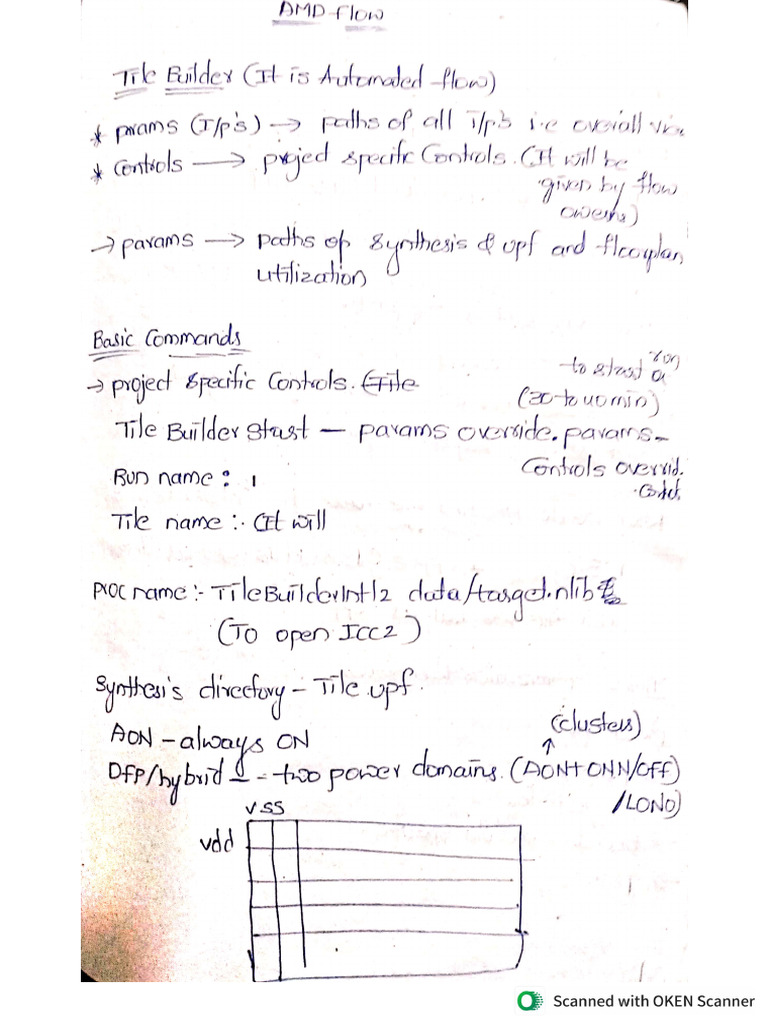 AMD-Flow
Tile Builder (It is Automated flow)
* params (I/p's) → paths of all I/p's i.e overall
* Controls → project specific Controls. (It will be
given by flow
owens)
→ params → paths of Synthesis & upf and floorplan
utilization
Basic Commands
to start a run
→ project specific Controls. (Tile
(20 to 40 min)
Tile Builder Start – params override.params–
Controls overrid.
Run name: 1
Tile name :- (It will
proc name:- TileBuilderInt12 data/target.nlib
(To open ICC2)
Synthesis directory – Tile.upf.
(clusters)
↑
AON – always ON
DFP/hybrid – = two power domains. (AON + ONN/OFF)
/LONO)
VSS
Vdd
Scanned with OKEN Scanner